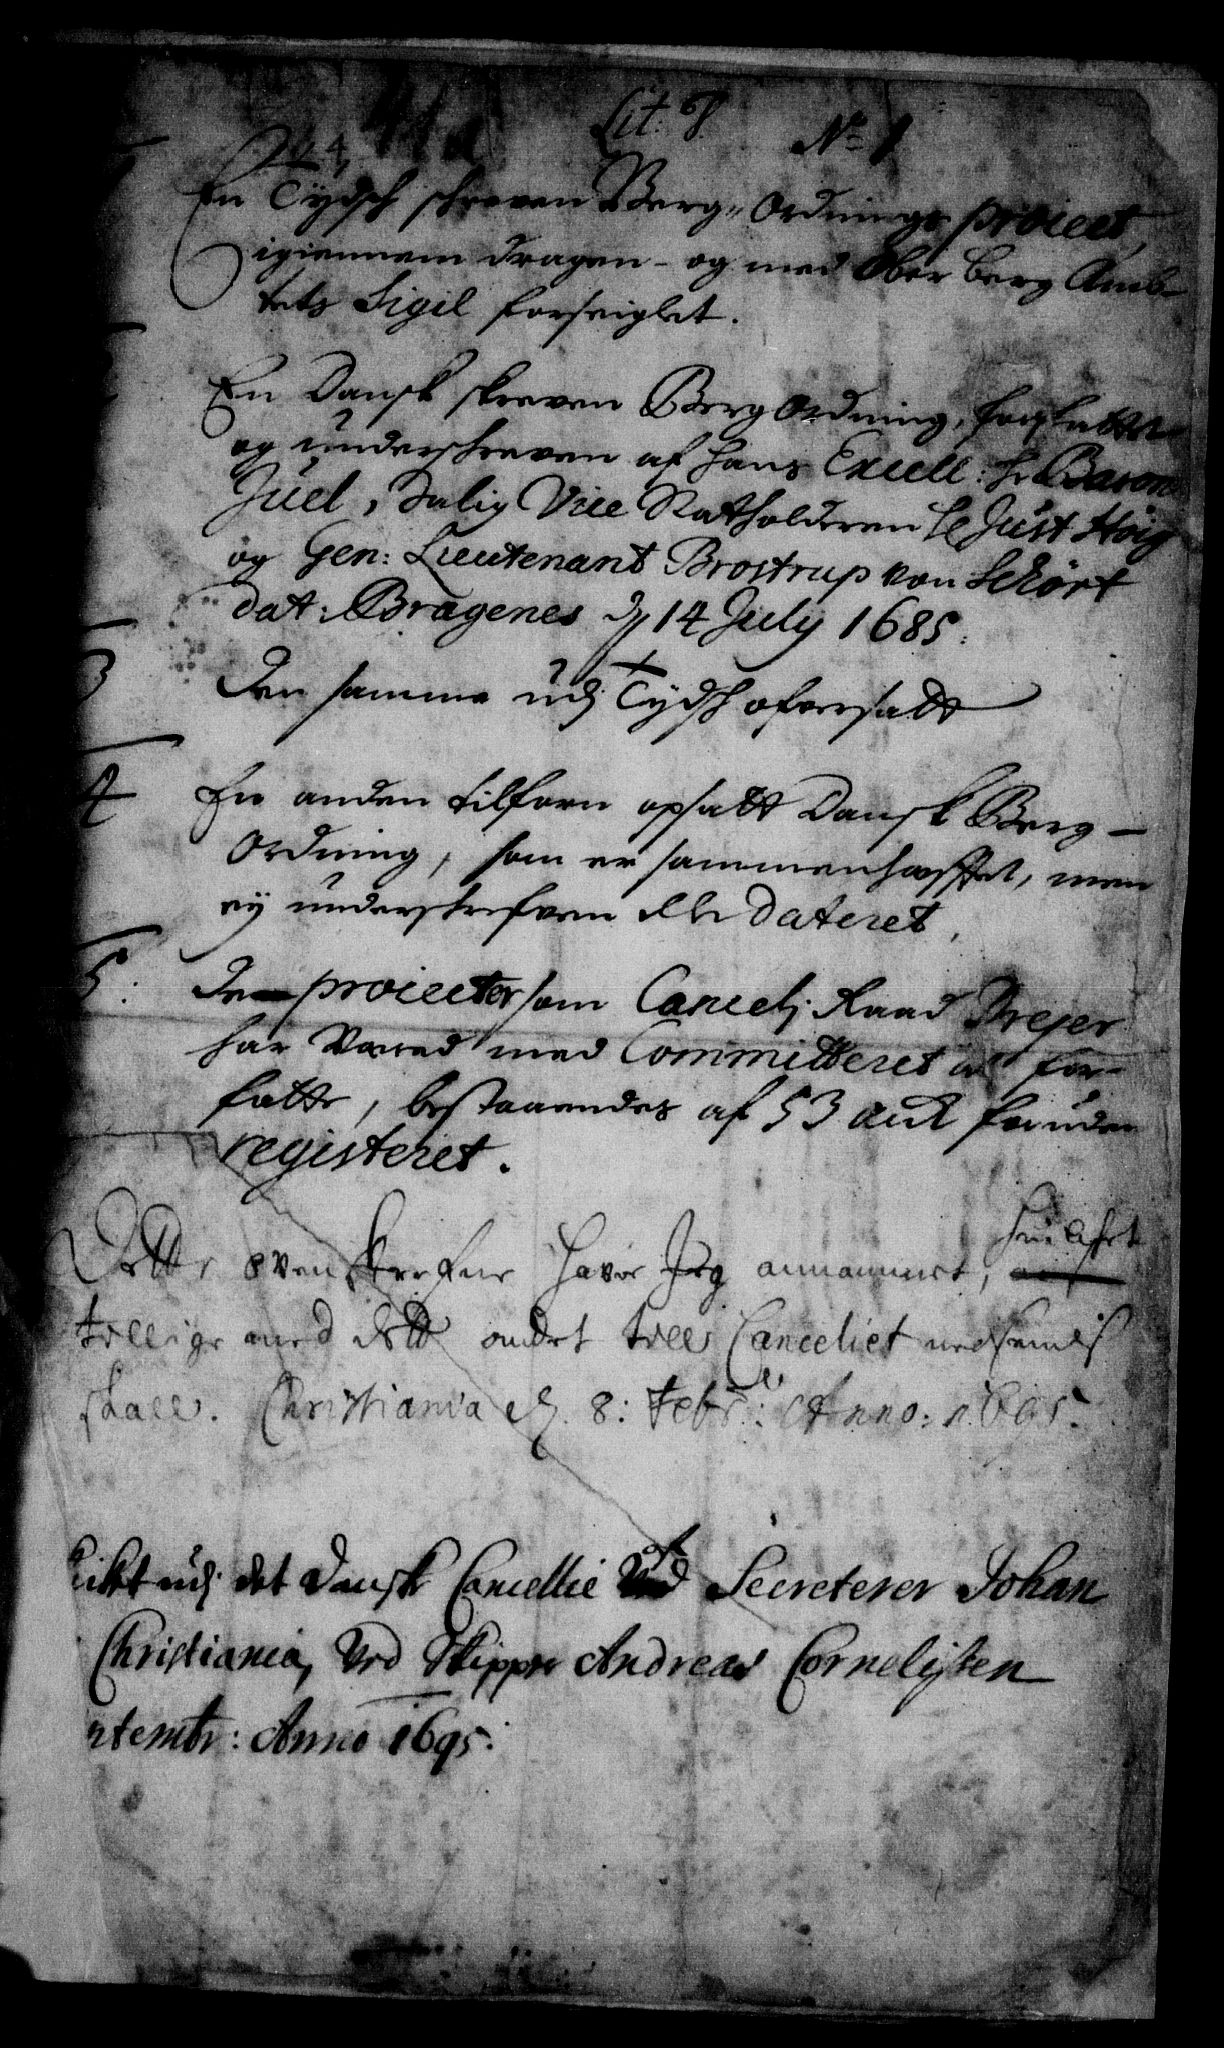 Lit: G. No 1
En Tydsch schreven Berg-Ordnings proiect,
igiennem dragen - og med Ober Berg Amb-
tets Sigil forseiglet.
En Dansk skreven Berg Ordning, forfattet
og underschreven af hans Excell: Hr Baron
Juel, Salig Vice Statholderen Hr Just Høig
og Gen: Lieutenant Brostrup von Schört
dat: Bragenes d 14 July 1685.
3 Den samme udj Tydsch ofversatt
4 En anden tilforn opsatt Dansk Berg-
Ordning, som er sammenhefftet, men
ej underskrefven eller dateret.
5: De proiecter som Cancelj Raad Dreyer
har Vared med Committeret at for-
fatte, bestaaendes af 53 art foruden
registeret.
huilchet
Dette ovenskrefne haver Jeg annammet,
tillige med dette andet till Canceliet nedsendis
skall. Christiania d. 8: Febr: Anno: 1695.
udj det Danske Cancellie Secreterer Johan
Christiania, Ved Skipper Andreas Cornelissen
ptembr: Anno 1695: